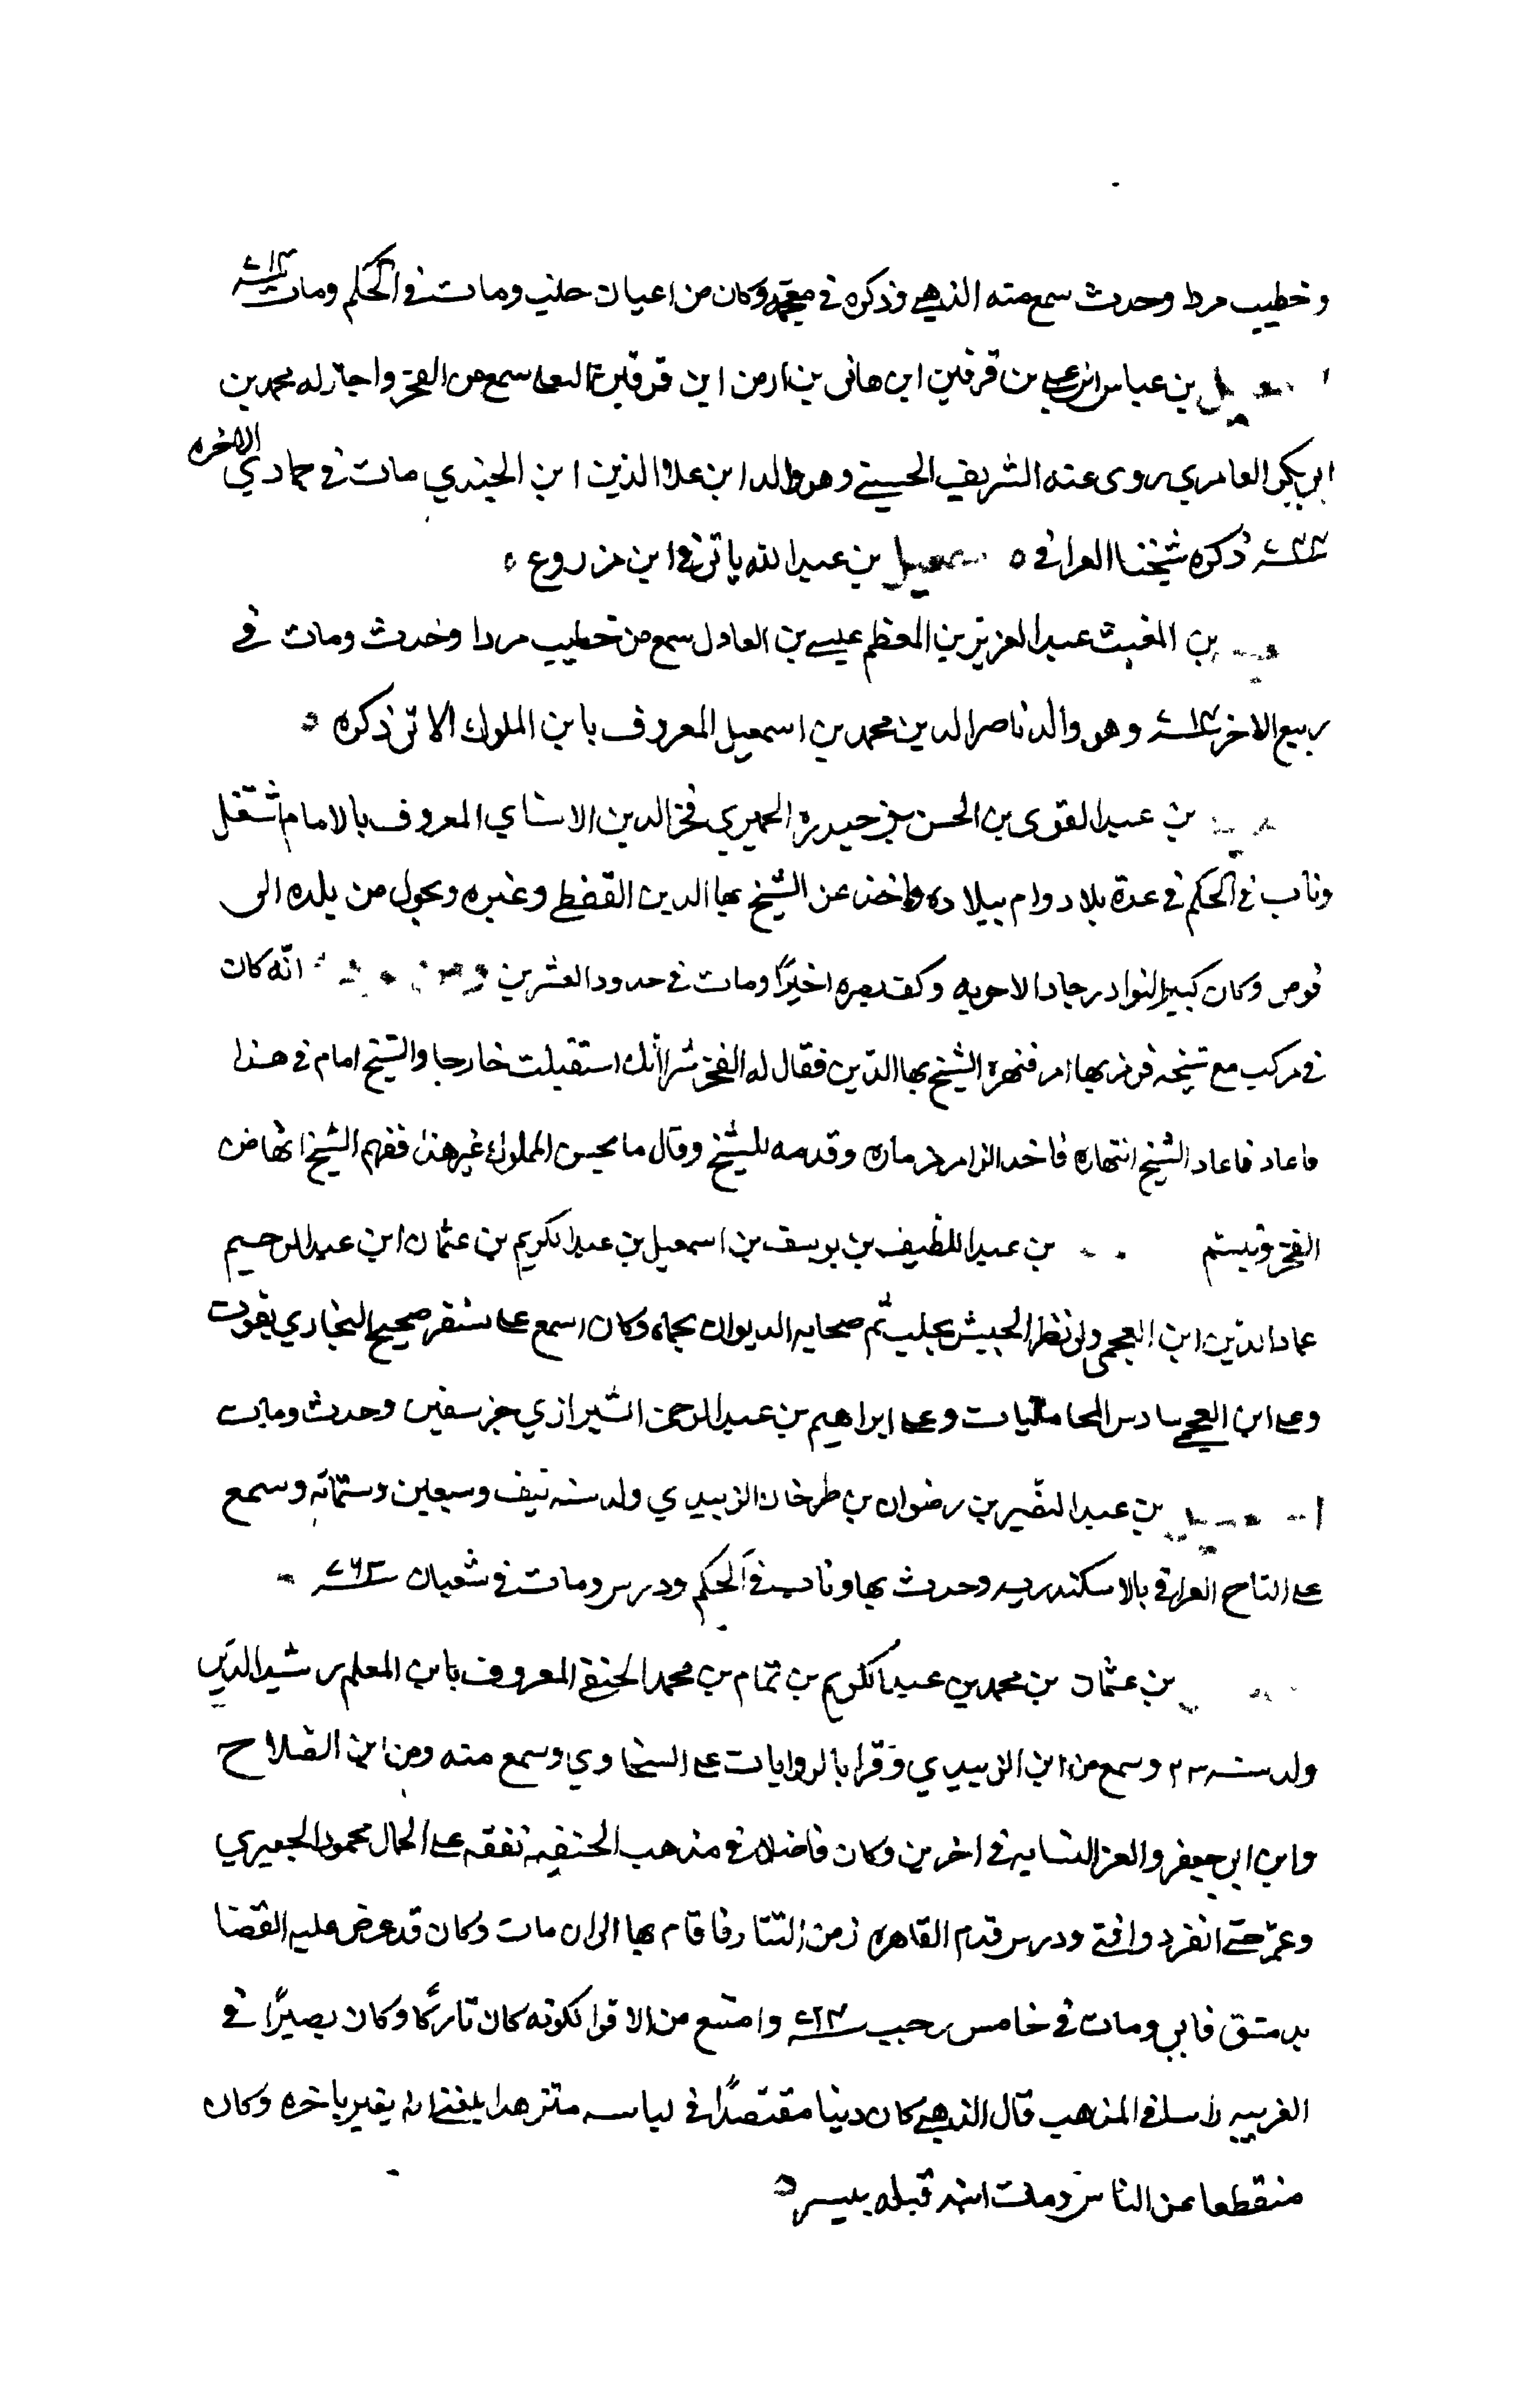 وخطيب مردا وحدث سمع منه الذهبي وذكره في معجمه وكان من اعيان حلب ومات في الحكم ومات سنة ٧١٣
بن عباس بن علي بن قرقين ابن هاني بن ارمن ابن قرقين سمع من الفخر واجاز له محمد بن
ابي بكر العامري روى عنه الشريف الحسيني وهو والد ابن علاء الدين ابن الجندي مات في جمادي الاخره
ذكره شيخنا العراقي ٥ اسمعيل بن عبد الله ياتي في ابن مزروع ٥
بن المغيث عبد العزيز بن المعظم عيسى بن العادل سمع من خطيب مردا وحدث ومات في
ربيع الاخر سنة وهو والد ناصر الدين محمد بن اسمعيل المعروف بابن الملوك الاتي ذكره ٥
بن عبد القوى بن الحسن بن حيدره الحميري فخر الدين الاسناي المعروف بالامام اشتغل
وناب في الحكم في عدة بلاد وام ببلاده واخذ عن الشيخ بها الدين القفطي وغيره وتحول من بلده الى
قوص وكان كبير النوادر حاد الاجوبه وكف بصره اخيرًا ومات في حدود العشرين انه كان
في مركب مع شيخه فزمر بها زامر فنهره الشيخ بها الدين فقال له الفخر سرا انك استقبلت خارجا والشيخ امام في هذا
فاعاد فاعاد الشيخ انتهاره فاخذ الزامر زماره وقدمه للشيخ وقال ما يحسن المملوك غير هذا ففهم الشيخ انها من
الفخر وتبسم بن عبد اللطيف بن يوسف بن اسمعيل بن عبد الكريم بن عثمان ابن عبد الرحيم
عماد الدين ابن العجمي ولي نظر الجيش بحلب ثم صحابه الديوان بحماه وكان اسمع على سنقر صحيح البخاري بفوت
وعلى ابن العجمي سادس المحامليات وعلى ابراهيم بن عبد الرحمن الشيرازي جزء سفين وحدث ومات
بن عبد النصير بن رضوان بن طرخان الزبيدي ولد سنه نيف وسبعين وستمائه وسمع
على التاج العراقي بالاسكندريه وحدث بها وناب في الحكم ودرس ومات في شعبان سنة ٧٦٣
بن عثمان بن محمد بن عبد الكريم بن تمام بن محمد الحنفي المعروف بابن المعلم رشيد الدين
ولد سنه ٢٣ وسمع من ابن الزبيدي وقرا بالروايات على السخاوي وسمع منه ومن ابن الصلاح
وابن ابي جعفر والعز النسابه في اخرين وكان فاضلا في مذهب الحنفيه تفقه على الجمال محمود الحصيري
وعمر حتى انفرد وافتى ودرس قدم القاهره زمن التتار فاقام بها الى ان مات وكان قد عرض عليه القضا
بدمشق فابي ومات في خامس رجب سنة وامتنع من الاقرا لكونه كان تاركًا وكان بصيرًا في
العربيه راسا في المذهب قال الذهبي كان دينا مقتصدًا في لباسه متزهدا بلغني انه تغير باخره وكان
منقطعا عن الناس ومات ابنه قبله بيسير ٥